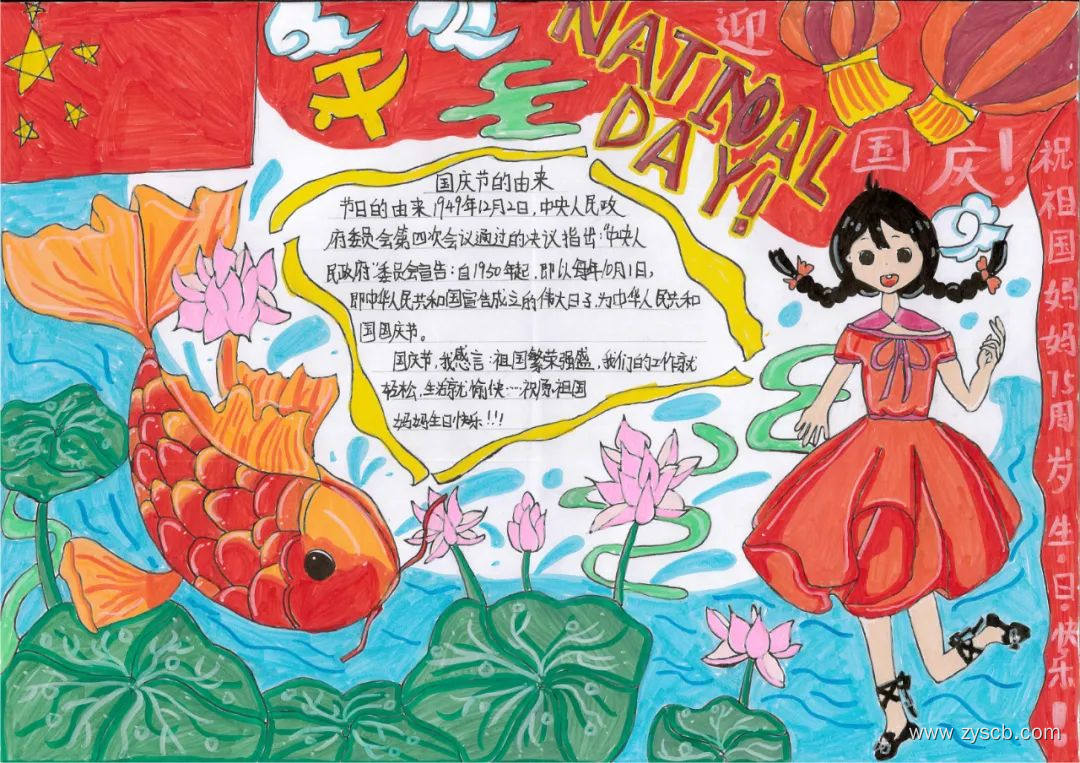 NATIONAL
DAY!
迎
国庆!
国庆节的由来
节日的由来1949年12月2日,中央人民政
府委员会第四次会议通过的决议指出:“中央人
民政府”委员会宣告:自1950年起,即以每年10月1日,
即中华人民共和国宣告成立的伟大日子,为中华人民共和
国国庆节。
国庆节,我感言:祖国繁荣强盛,我们的工作就
轻松,生活就愉快…祝愿祖国
妈妈生日快乐!!!
祝祖国妈妈75周岁生·日·快乐!!
www.zyscb.com